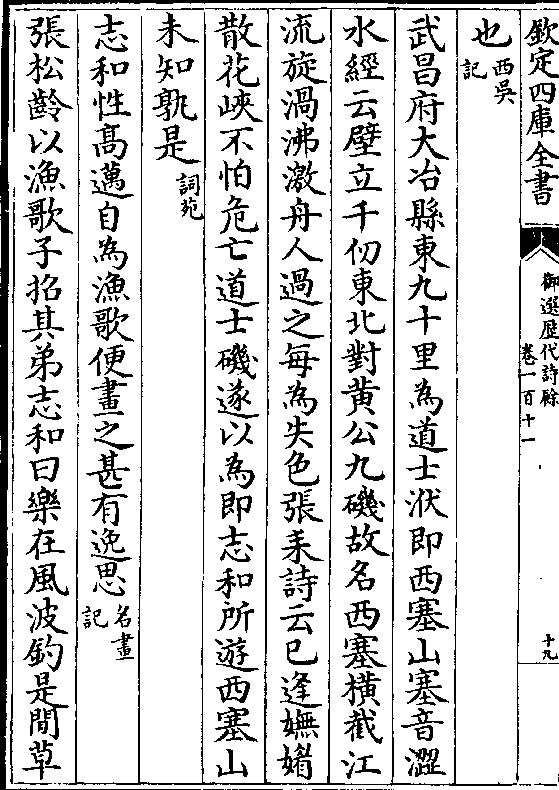 欽定四庫全書
御選歷代詩餘
卷一百十一
十九
也西吳
記
武昌府大冶縣東九十里為道士洑即西塞山塞音澀
水經云壁立千仞東北對黃公九磯故名西塞橫截江
流旋渦沸激舟人過之每為失色張耒詩云已逢嫵媚
散花峽不怕危亡道士磯遂以為即志和所遊西塞山
未知孰是詞苑
志和性高邁自為漁歌便畫之甚有逸思名畫
記
張松齡以漁歌子招其弟志和曰樂在風波釣是閒草